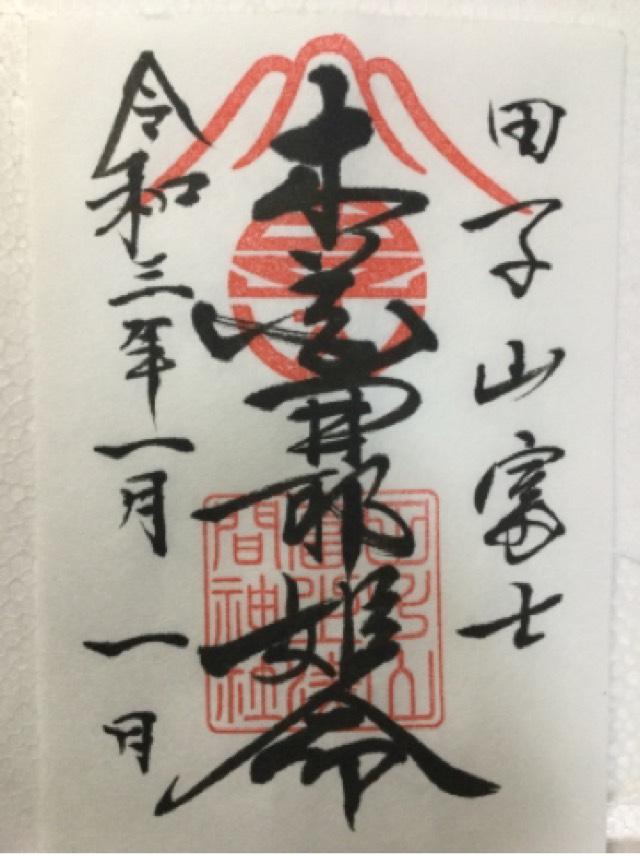 田子山富士
木花開耶姫命
令和三年一月一日
田子山
富士浅
間神社